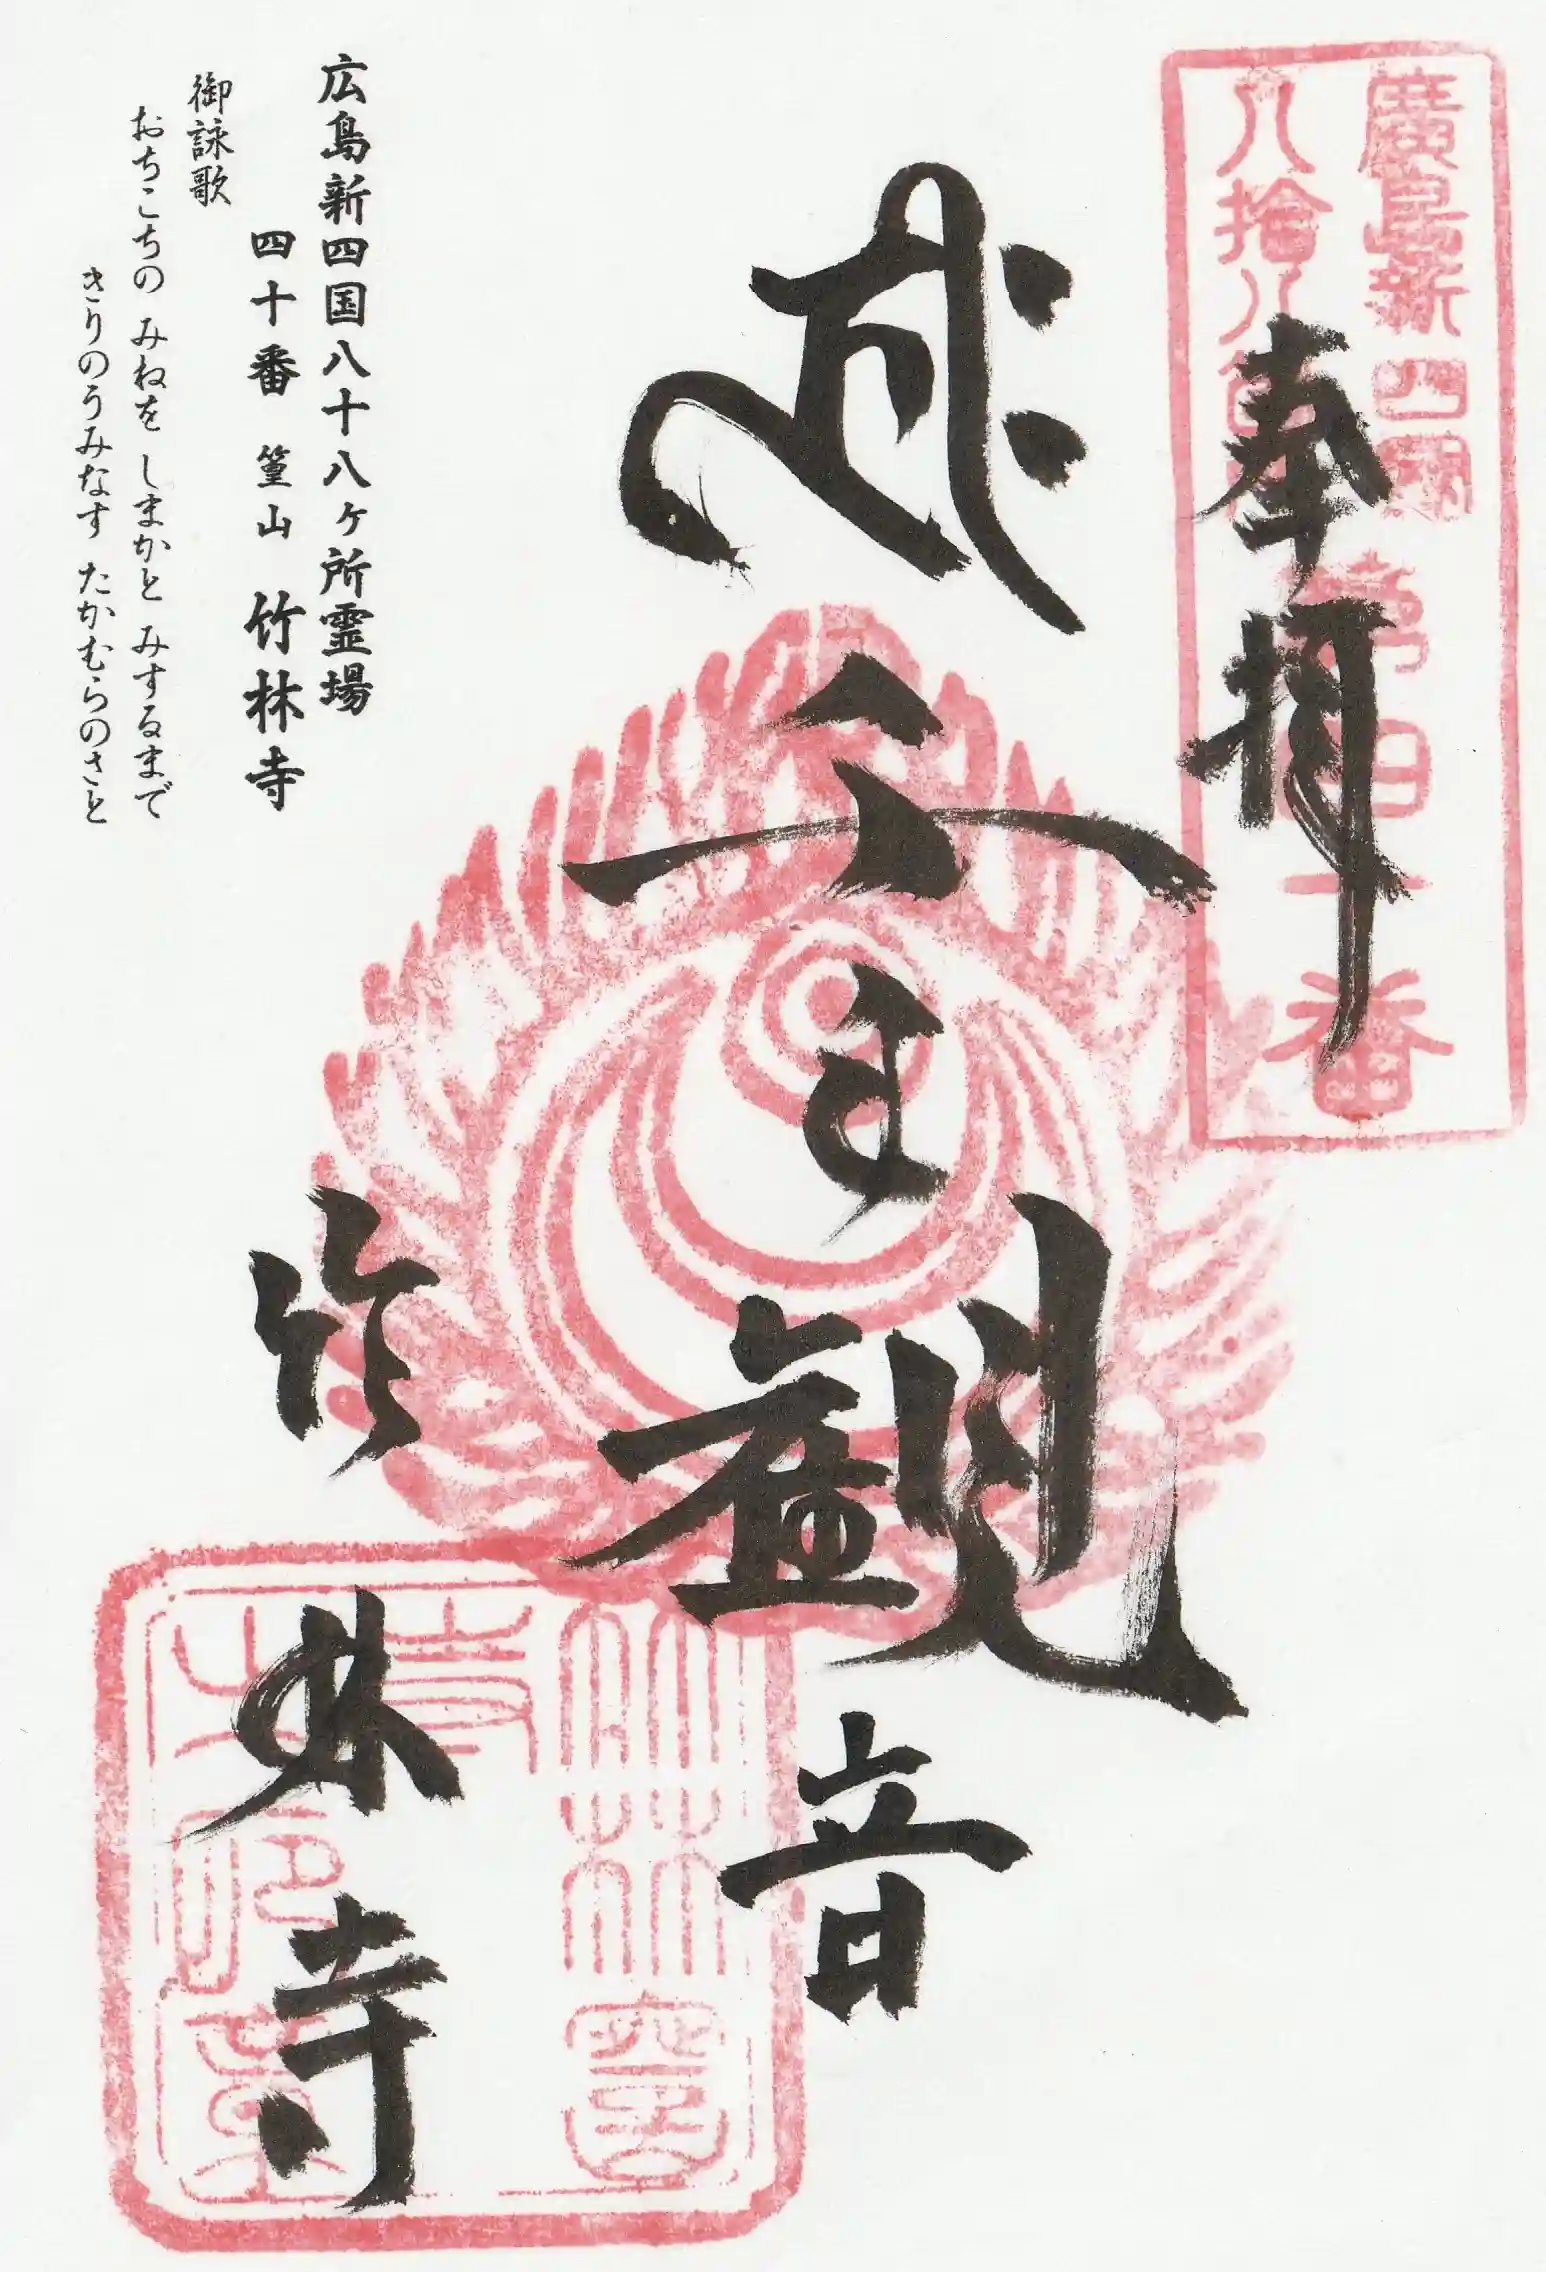 廣島新四國
八拾八箇所
第四十番
奉拝
千手観音
竹林寺
広島新四国八十八ヶ所霊場
四十番 篁山 竹林寺
御詠歌
おちこちの みねを しまかと みするまで
きりのうみなす たかむらのさと